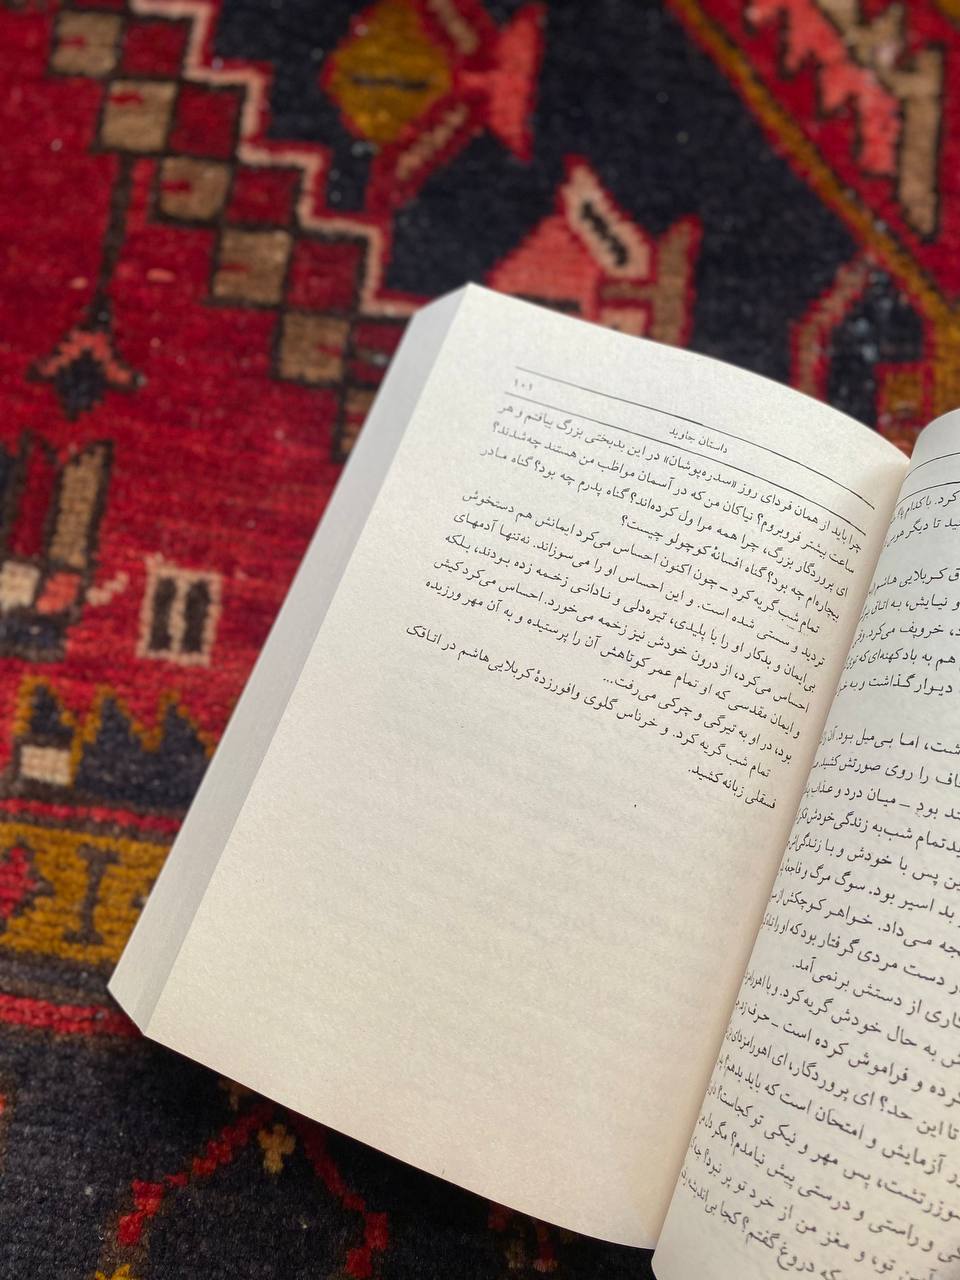 داستان جاوید
۱۰۱
چرا باید از همان فردای روز «سدره‌پوشان» در این بدبختی بزرگ بیافتم و هر
ساعت بیشتر فروبروم؟ نیاکان من که در آسمان مواظب من هستند چه شدند؟
ای پروردگار بزرگ، چرا همه مرا ول کرده‌اند؟ گناه پدرم چه بود؟ گناه مادر
بیچاره‌ام چه بود؟ گناه افسانهٔ کوچولو چیست؟
تمام شب گریه کرد ـ چون اکنون احساس می‌کرد ایمانش هم دستخوش
تردید و سستی شده است. و این احساس او را می‌سوزاند. نه‌تنها آدمهای
بی‌ایمان و بدکار او را با پلیدی، تیره‌دلی و نادانی زخمه زده بودند، بلکه
احساس می‌کرد، از درون خودش نیز زخمه می‌خورد. احساس می‌کرد کیش
و ایمان مقدسی که او تمام عمر کوتاهش آن را پرستیده و به آن مهر ورزیده
بود، در او به تیرگی و چرکی می‌رفت...
تمام شب گریه کرد. و خرناس گلوی وافورزدهٔ کربلایی هاشم در اتاقک
فسقلی زبانه کشید.
کرد. با کدام
ید تا دیگر
ق کربلایی هاشم
و نیایش، به اتاق
د، خروپف می‌کرد.
هم به باد کهنه‌ای که توی
دیوار گذاشت و به
شت، اما بی‌میل بود. آن
حاف را روی صورتش کشید.
ند بود ـ میان درد و عذاب
ید تمام شب به زندگی خودش فکر
ین پس با خودش و با زندگی‌اش
بد اسیر بود. سوگ مرگ و فاجعهٔ
جه می‌داد. خواهر کوچکش از
ر دست مردی گرفتار بود که او را
کاری از دستش برنمی‌آمد.
ش به حال خودش گریه کرد. و با
کرده و فراموش کرده است ـ حرف زد
تا این حد؟ ای پروردگار، ای اهورامزدای
ر آزمایش و امتحان است که باید بدهم؟
شوزرتشت، پس مهر و نیکی تو کجاست؟
کی و راستی و درستی پیش نیامدم؟ مگر دل
تو، و مغز من از خرد تو پر نبود؟
که دروغ گفتم؟ کجا بی‌اندیشه